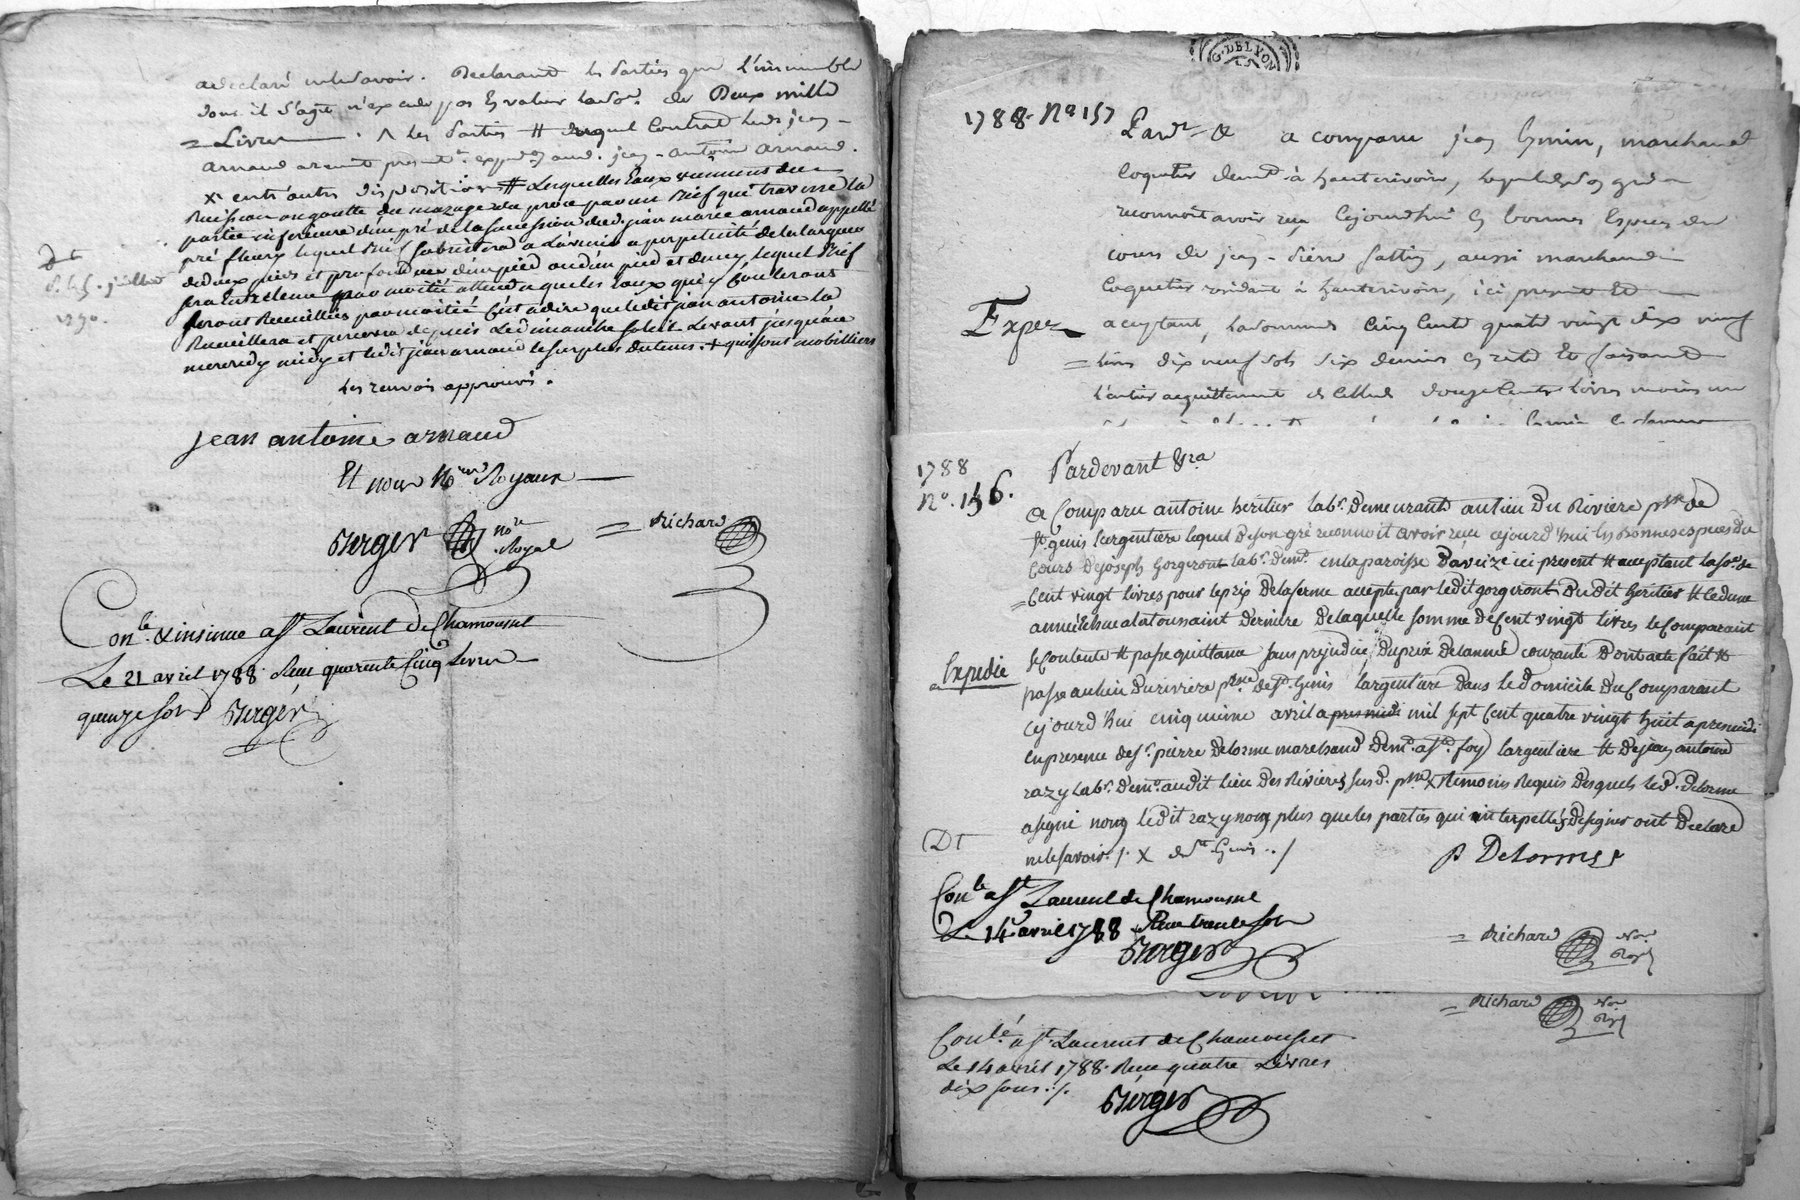 a declaré ne le savoir. Declarant les parties que l'immeuble
dont il s'agit n'excede pas en valeur la so.e de Deux mille
= Livres . ^ les parties # duquel contrat led. jean
arnaud aremit present.t expedon aud. jean-antoine arnaud.
x entr'autres dispositions # lesquelles Eaux viennent du
Ruisseau ou goutte du mazage du par un Rief qui traverse la
partie inferieure d'un pré de la succession dud. jean marie arnaud appellé
pré fleury lequel Rief subsistera a L'avenir a perpetuité de la largeur
de deux pieds et profondeur d'un pied ou d'un pied et demy, lequel Rief
sera Entretenu par moitié attendu que les Eaux qui y Couleront
seront Recueillies par moitié C'est a dire que ledit jean antoine la
Recueillera et percevra depuis Le dimanche soleil Levant jusqu'au
mercredy midy et ledit jean arnaud le surplus du tems. + qui sont mobilliers
Les renvois approuvés.
D t
juillet
1790.
jean antoine arnaud
Et nous No.res Royaux
Berger no.re Royal
= Richard
Con.lé & insinué a St Laurent De Chamousset
Le 21 avril 1788. Reçu quarente Cinq Livres
quinze sols Berger
G. DE LYON
1788. No 157
Pard.t & a comparu jean , marchand
coquetier demt à hauterivoire, lequel de son gré
reconnoit avoir reçu cejourd'hui en bonnes Especes du
cours de jean-Pierre , aussi marchand
Coquetier residant à hauterivoire, ici present et
acceptant, la somme de Cinq Cents quatre vingt dix neuf
= livres dix neuf sols six deniers en reste et faisant
l'entier acquittement de celle de douze Cents Livres moins un
Exper
1788
No. 156.
Pardevant &ra
a Comparu antoine heritier lab.r Demeurant au lieu Du Riviere p.sse de
St. genis Largentiere lequel De son gré reconnoit avoir reçu cejourd'hui En Bonnes especes Du
Cours De joseph gorgeront lab.r demt. en la paroisse D'aveize ici present et acceptant la so.e de
= Cent vingt livres pour le prix De la ferme acceptée par ledit gorgeront Dudit heritier et led. une
année Echue a la toussaint Derniere De laquelle somme De Cent vingt livres le Comparant
se Contente et passe quittance sans prejudice Du prix De l'année courante Dont acte fait et
Expedié
passé au lieu Du riviere p.sse De St. Genis largentiere Dans le Domicile Du Comparant
Cejourd'hui cinquieme avril apres midi mil sept Cent quatre vingt huit apres midi
en presence De Sr. pierre Delorme marchand Demt. a Ste. foy largentiere et De jean antoine
razy lab.r Demt. audit lieu Des Rivieres susd. p.sse x temoins Requis Desquels led. Delorme
a signé non ledit razy non plus que les parties qui interpellés De signer ont Declaré
ne le savoir ./. x de St Genis ./.
DT
P Delorme
Con.lé a St Laurent de Chamousset
Le 14 avril 1788 Reçu trente sols
Berger
= Richard no.re Royal
= Richard no.re Royl
Con.lé a St. Laurent de Chamousset
Le 14 avril 1788. Reçu quatre Livres
dix sous ./.
Berger